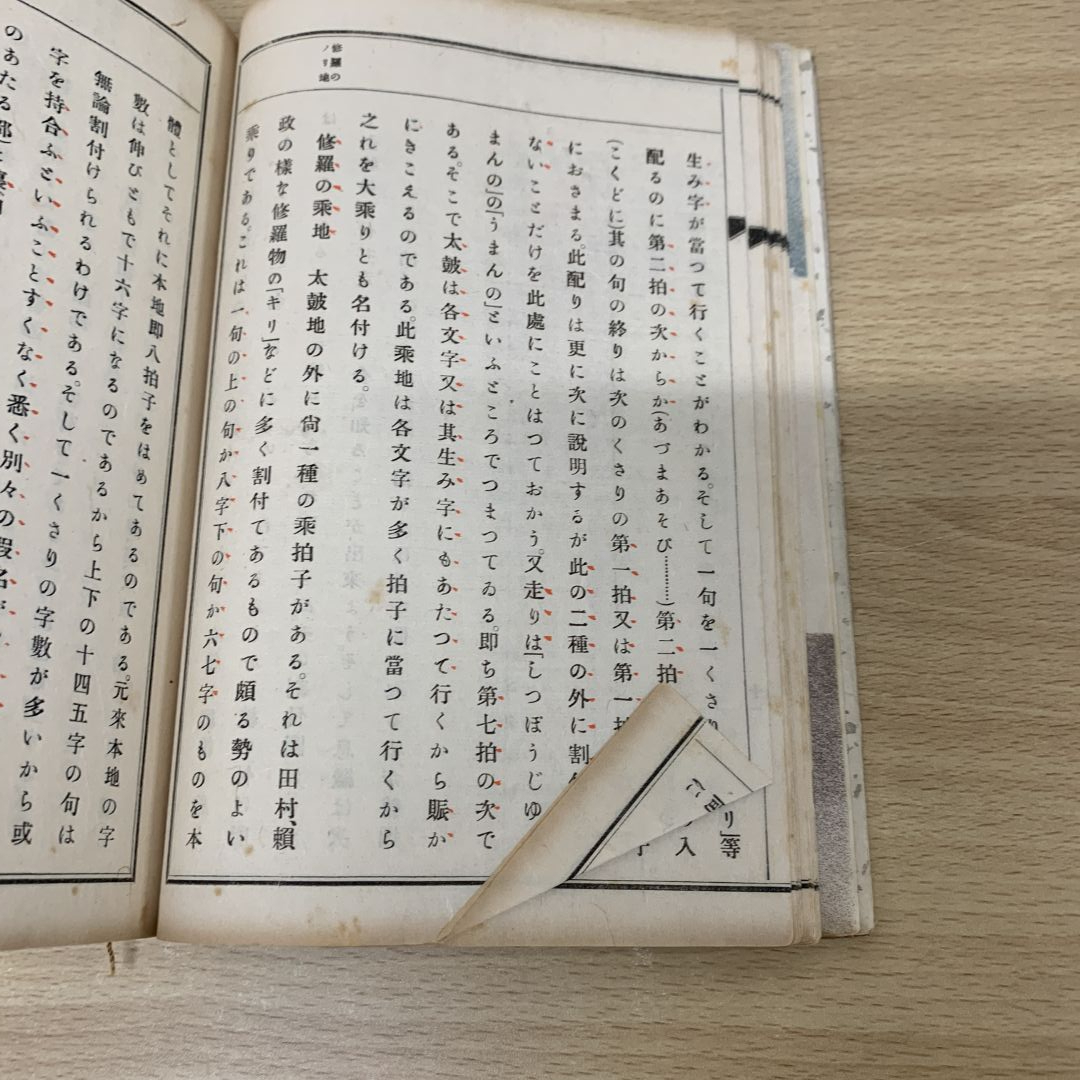 修羅の
ノリ地
生み字が當つて行くことがわかる。そして一句を一くさ
配るのに第二拍の次からか(あづまあそび…………)第二拍
(こくどに)其の句の終りは次のくさりの第一拍又は第一拍
におさまる。此配りは更に次に説明するが此の二種の外に割
ないことだけを此處にことはつておかう。又走りは「しつぼうじゆ
まんの」の「うまんの」といふところでつまつてゐる。即ち第七拍の次で
ある。そこで太皷は各文字又は其生み字にもあたつて行くから賑か
にきこえるのである。此乘地は各文字が多く拍子に當つて行くから
之れを大乘りとも名付ける。
修羅の乘地 太皷地の外に尙一種の乘拍子がある。それは田村、賴
政の樣な修羅物の「キリ」などに多く割付てあるもので頗る勢のよい
乘りである。これは一句の上の句か八字下の句か六七字のものを本
體としてそれに本地即八拍子をはめてあるのである。元來本地の字
數は伸びともで十六字になるのであるから上下の十四五字の句は
無論割付けられるわけである。そして一くさりの字數が多いから或
字を持合ふといふことすくなく悉く別々の假名が
のあたる
リ」等
入